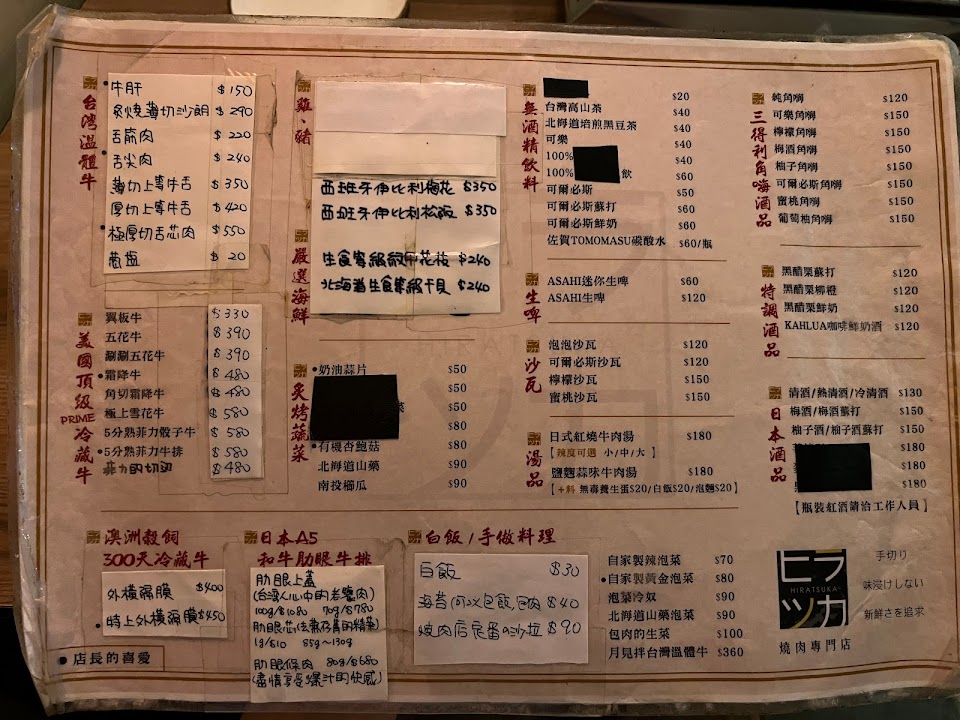 台灣溫體牛
牛肝 $150
炙燒薄切沙朗 $290
舌筋肉 $220
舌尖肉 $240
薄切上等牛舌 $350
厚切上等牛舌 $420
極厚切舌芯肉 $550
蔥鹽 $20
美國頂級PRIME冷藏牛
翼板牛 $330
五花牛 $390
涮涮五花牛 $390
霜降牛 $480
角切霜降牛 $480
極上雪花牛 $580
5分熟菲力骰子牛 $580
5分熟菲力牛排 $580
菲力的切邊 $480
雞、豬
西班牙伊比利梅花 $350
西班牙伊比利松阪 $350
嚴選海鮮
生食等級 花枝 $240
北海道生食等級干貝 $240
炙烤蔬菜
奶油蒜片 $50
$50
菜 $50
$80
有機杏鮑菇 $80
北海道山藥 $90
南投櫛瓜 $90
無酒精飲料
$20
台灣高山茶 $40
北海道焙煎黑豆茶 $40
可樂 $40
100% $40
100% 飲 $60
可爾必斯 $50
可爾必斯蘇打 $60
可爾必斯鮮奶 $60
佐賀TOMOMASU碳酸水 $60/瓶
生啤
ASAHI迷你生啤 $60
ASAHI生啤 $120
沙瓦
泡泡沙瓦 $120
可爾必斯沙瓦 $120
檸檬沙瓦 $150
蜜桃沙瓦 $150
湯品
日式紅燒牛肉湯 $180
【辣度可選 小/中/大】
鹽麴蒜味牛肉湯 $180
【+料 無毒養生蛋$20/白飯$20/泡麵$20】
三得利角嗨酒品
純角嗨 $120
可樂角嗨 $150
檸檬角嗨 $150
梅酒角嗨 $150
柚子角嗨 $150
可爾必斯角嗨 $150
蜜桃角嗨 $150
葡萄柚角嗨 $150
特調酒品
黑醋栗蘇打 $120
黑醋栗柳橙 $120
黑醋栗鮮奶 $120
KAHLUA咖啡鮮奶酒 $120
日本酒品
清酒/熱清酒/冷清酒 $130
梅酒/梅酒蘇打 $150
柚子酒/柚子酒蘇打 $150
$180
$180
【瓶裝紅酒請洽工作人員】
澳洲穀飼
300天冷藏牛
外橫膈膜 $400
特上外橫膈膜 $450
店長的喜愛
日本A5
和牛肋眼牛排
肋眼上蓋
(台灣人心中的老饕肉)
100g/$1080 70g/$780
肋眼芯
1g/$10 85g~130g
肋眼條肉 80g/$680
(盡情享受爆汁的快感)
白飯/手做料理
白飯 $30
海苔(可以包飯,包肉) $40
燒肉店定番の沙拉 $90
自家製辣泡菜 $70
自家製黃金泡菜 $80
泡菜冷奴 $90
北海道山藥泡菜 $90
包肉的生菜 $100
月見拌台灣溫體牛 $360
ヒラツカ
HIRATSUKA
手切り
味浸けしない
新鮮さを追求
燒肉專門店